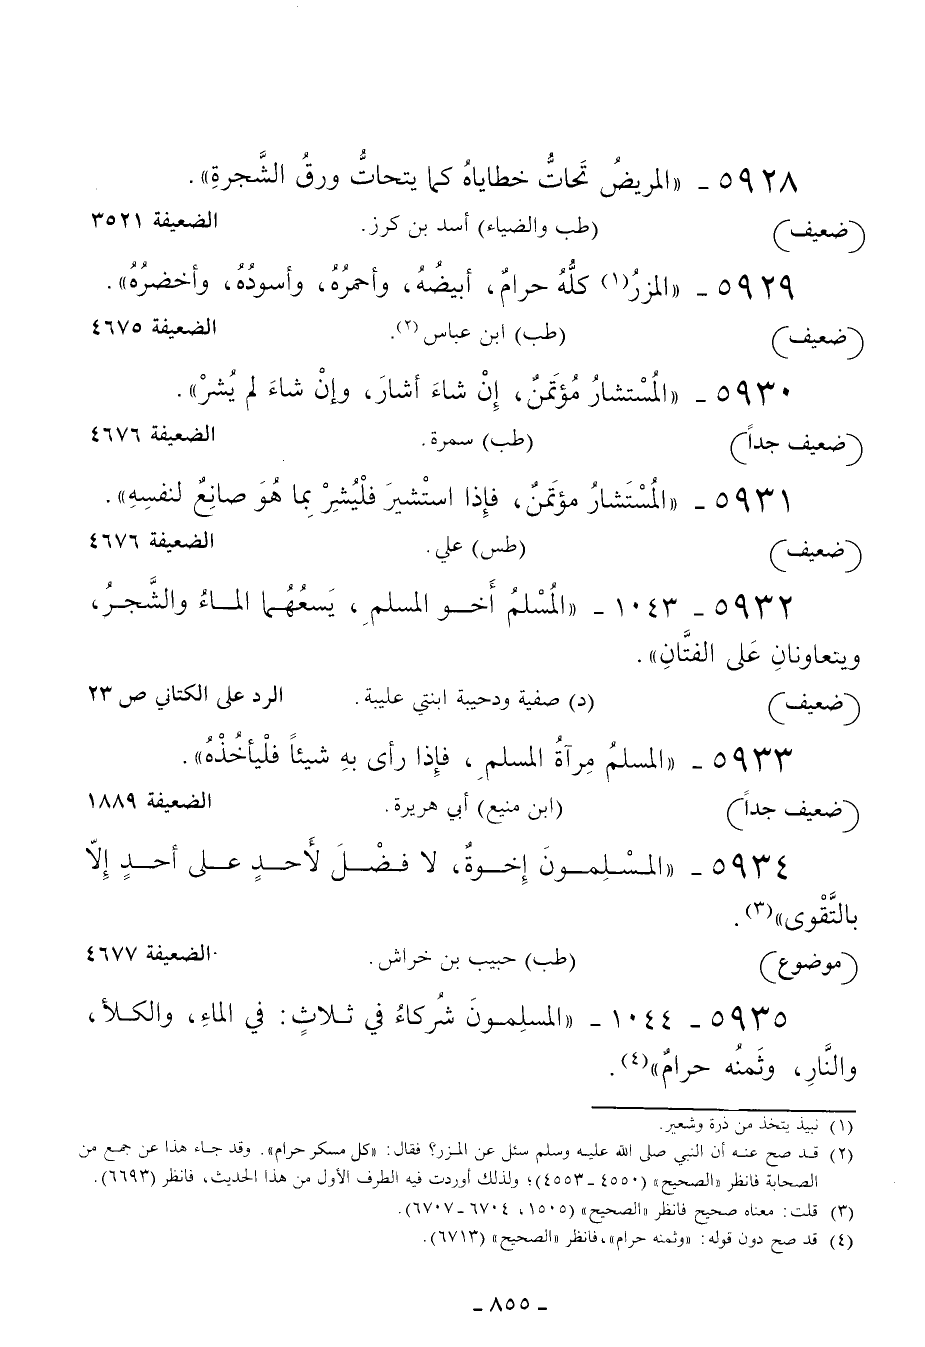 ٥٩٢٨ ـ «المريضُ تَحاتُّ خطاياهُ كما يتحاتُّ ورقُ الشَّجرةِ».
(ضعيف) (طب والضياء) أسد بن كرز. الضعيفة ٣٥٢١
٥٩٢٩ ـ «المزرُ(١) كلُّهُ حرامٌ، أبيضُهُ، وأحمرُهُ، وأسودُهُ، وأخضرُهُ».
(ضعيف) (طب) ابن عباس(٢). الضعيفة ٤٦٧٥
٥٩٣٠ ـ «المُسْتشارُ مُؤتَمنٌ، إِنْ شاءَ أشارَ، وإنْ شاءَ لم يُشرْ».
(ضعيف جداً) (طب) سمرة. الضعيفة ٤٦٧٦
٥٩٣١ ـ «المُسْتَشارُ مؤتَمنٌ، فإِذا استْشيرَ فلْيُشِرْ بِما هُوَ صانِعٌ لنفسِهِ».
(ضعيف) (طس) علي. الضعيفة ٤٦٧٦
٥٩٣٢ ـ ١٠٤٣ ـ «المُسْلمُ أَخو المسلمِ، يَسعُهُما الماءُ والشَّجرُ،
ويتعاونانِ عَلى الفتَّانِ».
(ضعيف) (د) صفية ودحيبة ابنتي عليبة. الرد على الكتاني ص ٢٣
٥٩٣٣ ـ «المسلمُ مِرآةُ المسلمِ، فإِذا رأى بهِ شيئاً فلْيأخُذْهُ».
(ضعيف جداً) (ابن منيع) أبي هريرة. الضعيفة ١٨٨٩
٥٩٣٤ ـ «المسْلِمونَ إِخوةٌ، لا فضْلَ لأَحدٍ على أحدٍ إِلّا
بالتَّقْوى»(٣).
(موضوع) (طب) حبيب بن خراش. الضعيفة ٤٦٧٧
٥٩٣٥ ـ ١٠٤٤ ـ «المسلِمونَ شُركاءُ في ثلاثٍ: في الماءِ، والكلأ،
والنَّارِ، وثَمنُه حرامٌ»(٤).
(١) نبيذ يتخذ من ذرة وشعير.
(٢) قد صح عنه أن النبي صلى الله عليه وسلم سئل عن المزر؟ فقال: «كل مسكر حرام». وقد جاء هذا عن جمع من
الصحابة فانظر «الصحيح» (٤٥٥٠ـ٤٥٥٣)؛ ولذلك أوردت فيه الطرف الأول من هذا الحديث، فانظر (٦٦٩٣).
(٣) قلت: معناه صحيح فانظر «الصحيح» (١٥٠٥، ٦٧٠٤ـ٦٧٠٧).
(٤) قد صح دون قوله: «وثمنه حرام»، فانظر «الصحيح» (٦٧١٣).
ـ ٨٥٥ ـ